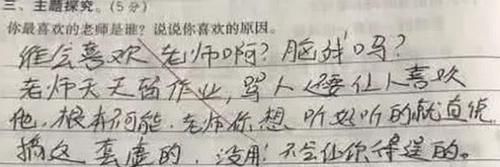 三、主题探究。(5分)
你最喜欢的老师是谁？说说你喜欢的原因。
谁会喜欢老师啊？脑残吗？
老师天天留作业，骂人还要让人喜欢
他，根本不可能，老师你想听好听的就直说，
搞这套虚的，没用！不会让你得逞的。